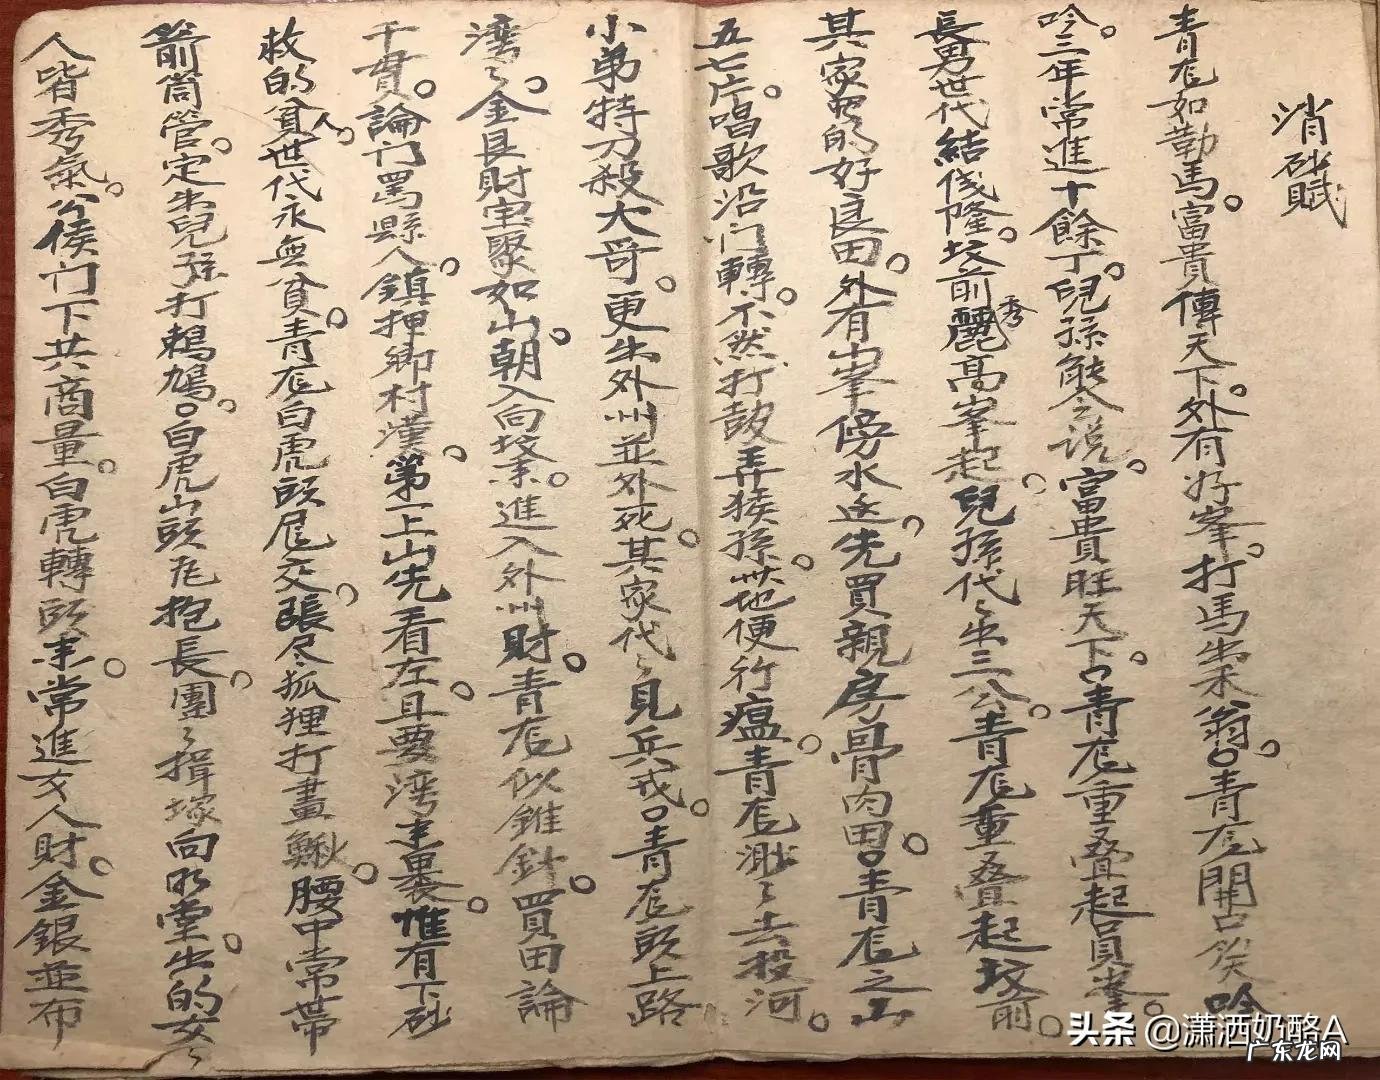 消砂賦
青龙如勒馬。富貴傳天下。外有好峯。打馬出朱翁。〇青龙開口笑吟
吟。三年常進十餘丁。兒孫能会说。富貴旺天下。〇青龙重叠起貝峯。
長男世代結伐隆。坟前麗秀高峯起。兒孫代〻出三公。青龙重叠起坟前。
其家的好良田。外有山峯傍水送。先買親房骨肉田。〇青龙之山
五七片。唱歌沿门轉。不然打鼓弄猴孫。世便行瘟。青龙渺〻去投河。
小弟特刀殺大哥。更出外州並外死。其家代〻見兵戎。〇青龙頭上路
湾〻。金艮財宝聚如山。朝入向坟来。進入外州財。青龙似錐針。買田論
千貫。論门罵縣人。鎮押鄉村漢。第一上山先看左。且要湾来裹。惟有下砂
救的貧人。世代永無貧。青龙白虎頭尾交。張尽狐狸打畫鰍。腰中常带
箭筒管。定出兒孫打鵜鳩。〇白虎山頭龙抱長。團〻揖塚向明堂。出的女〻
人皆秀氣。公侯门下共商量。白虎轉頭来。常進女人財。金銀並布
头条 @潇洒奶酪A
广东龙网